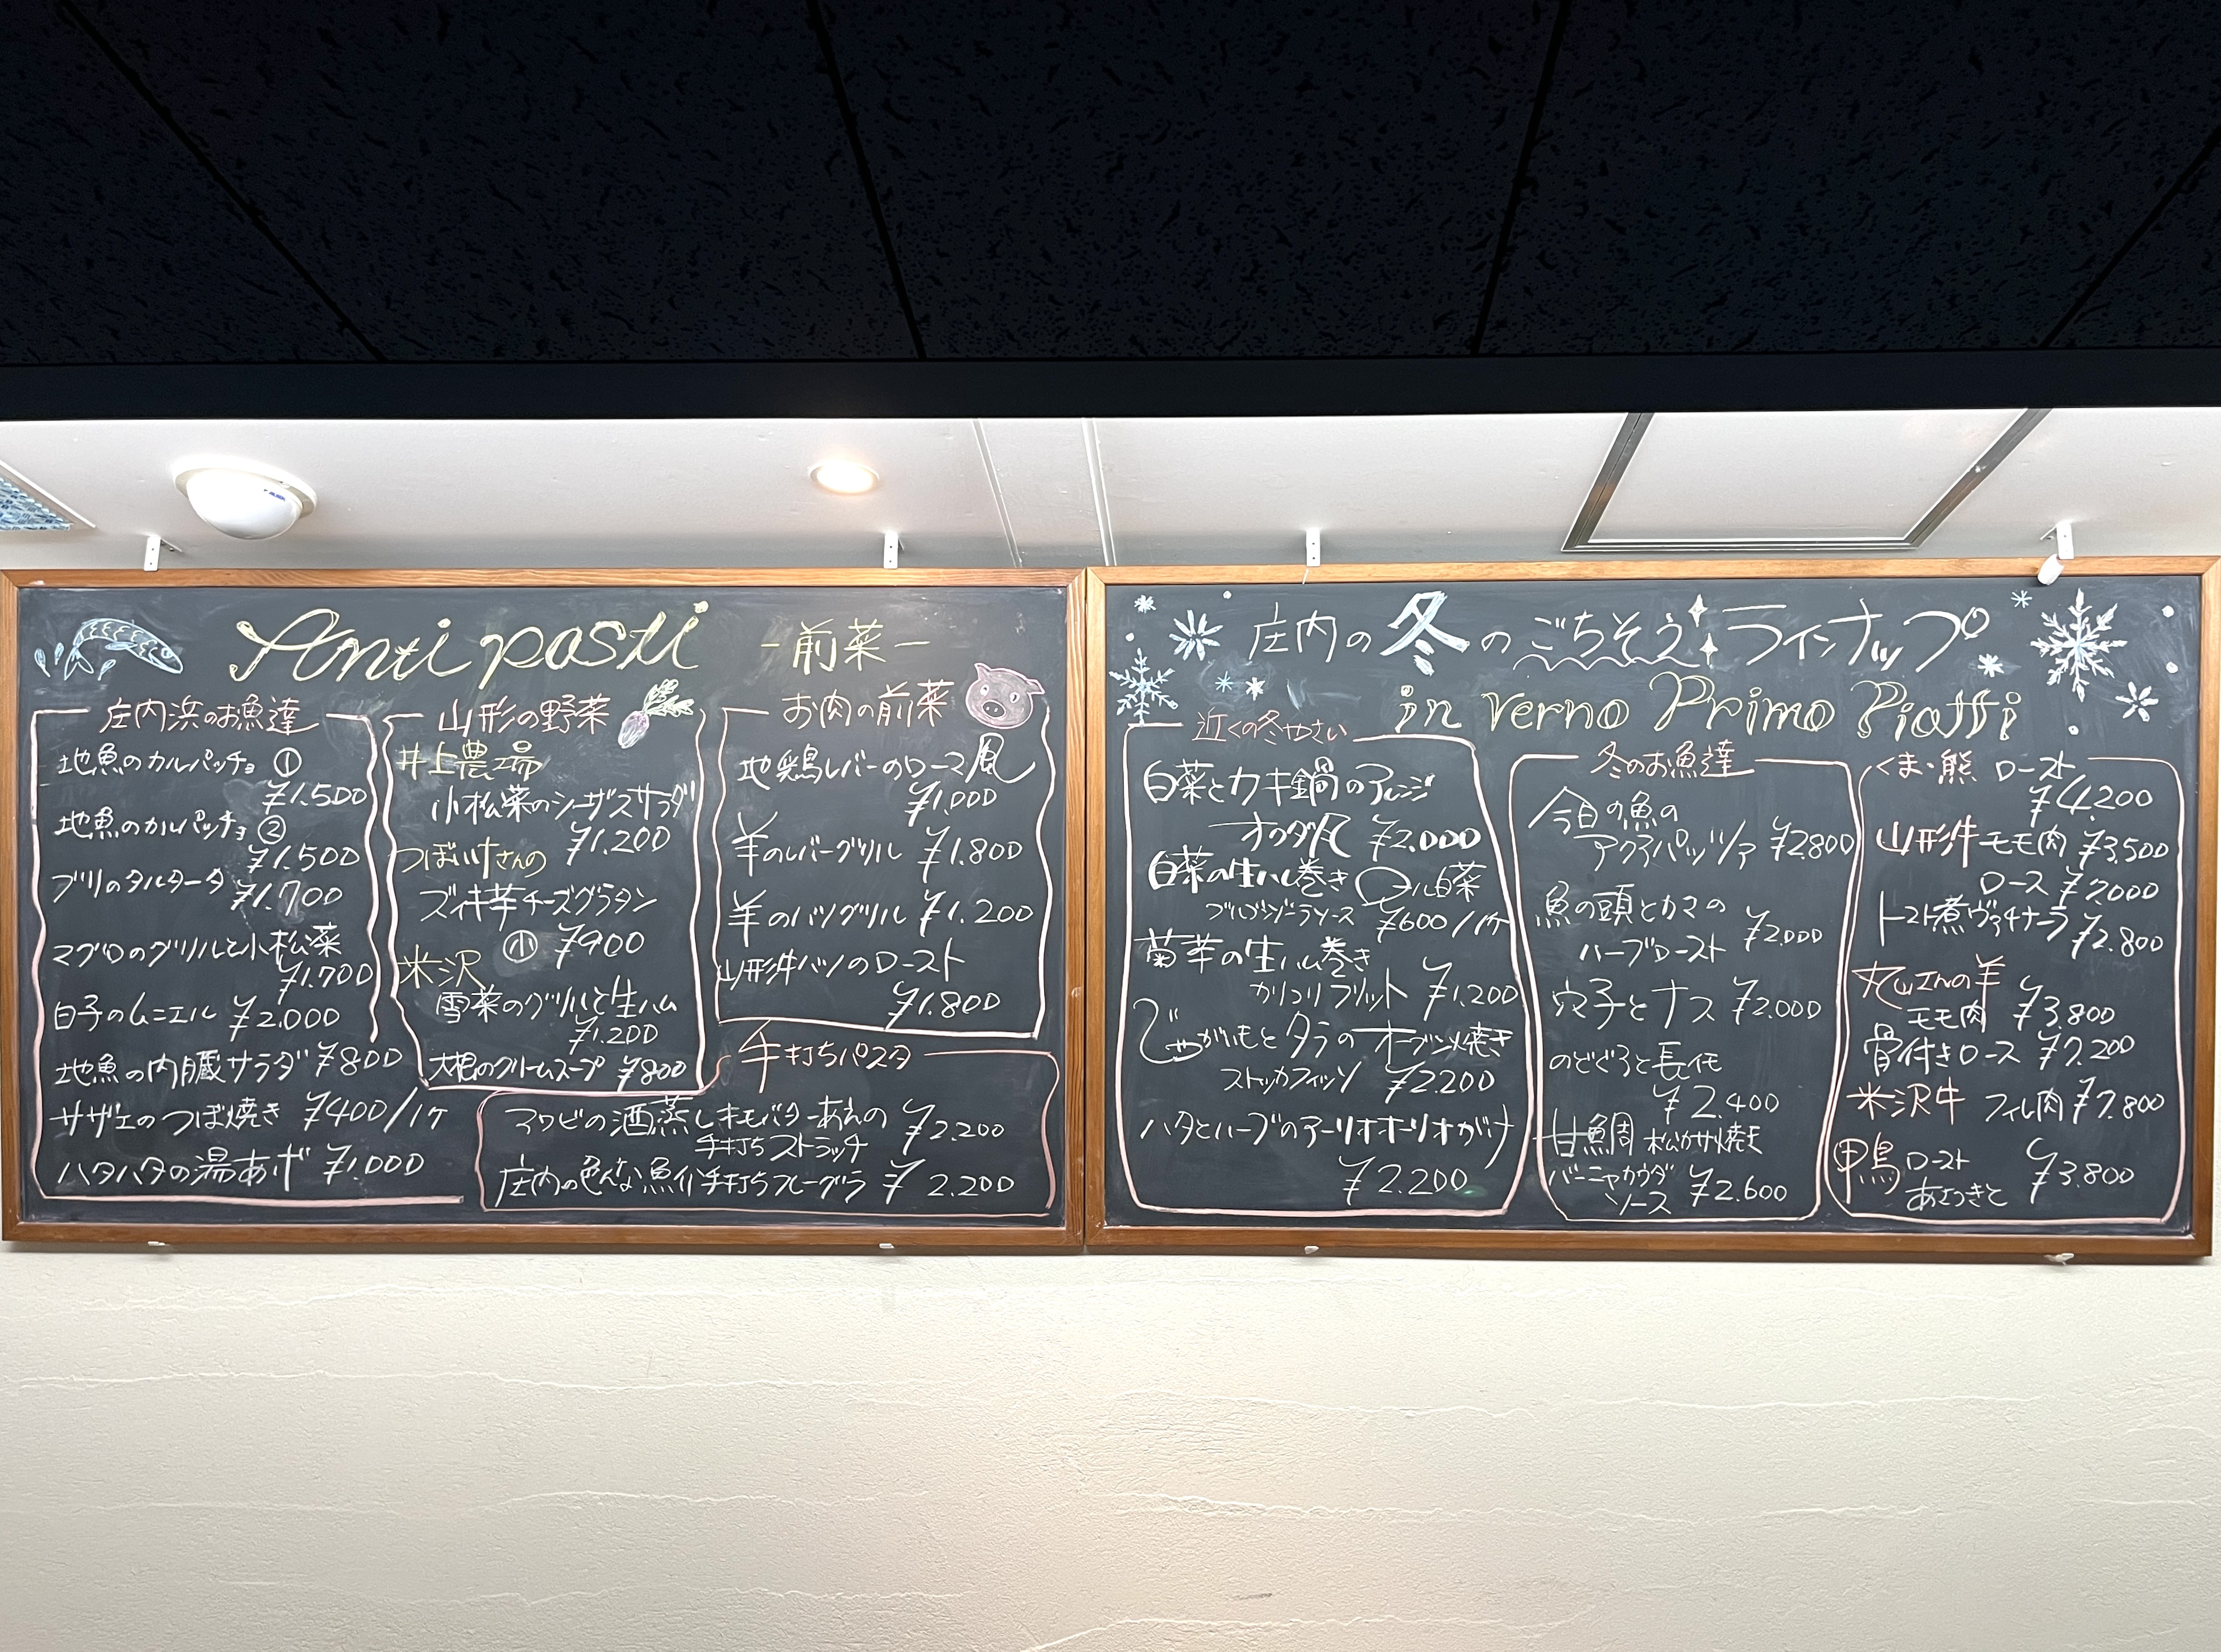 Anti pasti -前菜-
庄内浜のお魚達
地魚のカルパッチョ ①
¥1.500
地魚のカルパッチョ ②
¥1.500
ブリのタルタータ
¥1.700
マグロのグリルと小松菜
¥1.700
白子のムニエル ¥2.000
地魚の内臓サラダ ¥800
サザエのつぼ焼き ¥400/1ケ
ハタハタの湯あげ ¥1.000
山形の野菜
井上農場
小松菜のシーザスサラダ
¥1.200
さんの
ズイキ芋チーズグラタン
㊥ ¥900
米沢
雪菜のグリルと生ハム
¥1.200
大根のクリームスープ ¥800
お肉の前菜
地鶏レバーのローマ風
¥1.000
羊のレバーグリル ¥1.800
羊のハツグリル ¥1.200
山形牛ハツのロースト
¥1.800
手打ちパスタ
アワビの酒蒸しキモバターあえの ¥2.200
手打ちストラッチ
庄内の色んな魚介手打ちフレーグラ ¥2.200
庄内の冬のごちそうラインナップ
in verno Primo Piatti
近くの冬やさい
白菜とカキ鍋のアレンジ
¥2.000
白菜の生ハム巻き ロール白菜
ゴルゴンゾーラソース ¥600/1ケ
菊芋の生ハム巻き
カリコリフリット ¥1.200
じゃがいもとタラのオーブン焼き
ストッカフィッソ ¥2.200
ハタとハーブのアーリオオーリオがけ
¥2.200
冬のお魚達
今日の魚の
アクアパッツァ ¥2800
魚の頭とカマの
ハーブロースト ¥2.000
穴子とナス ¥2.000
のどぐろと長イモ
¥2.400
甘鯛 松カサ焼き
バーニャカウダ
ソース ¥2.600
くま・熊 ロースト
¥4.200
山形牛 モモ肉 ¥3.500
ロース ¥7.000
トマト煮ヴァチナーラ ¥2.800
丸山さんの羊
モモ肉 ¥3.800
骨付きロース ¥7.200
米沢牛 フィレ肉 ¥7.800
鴨 ロースト
あさつきと ¥3.800